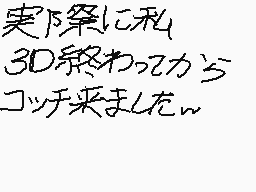 実際祭に私
3D終わってから
コッチ来ましたw